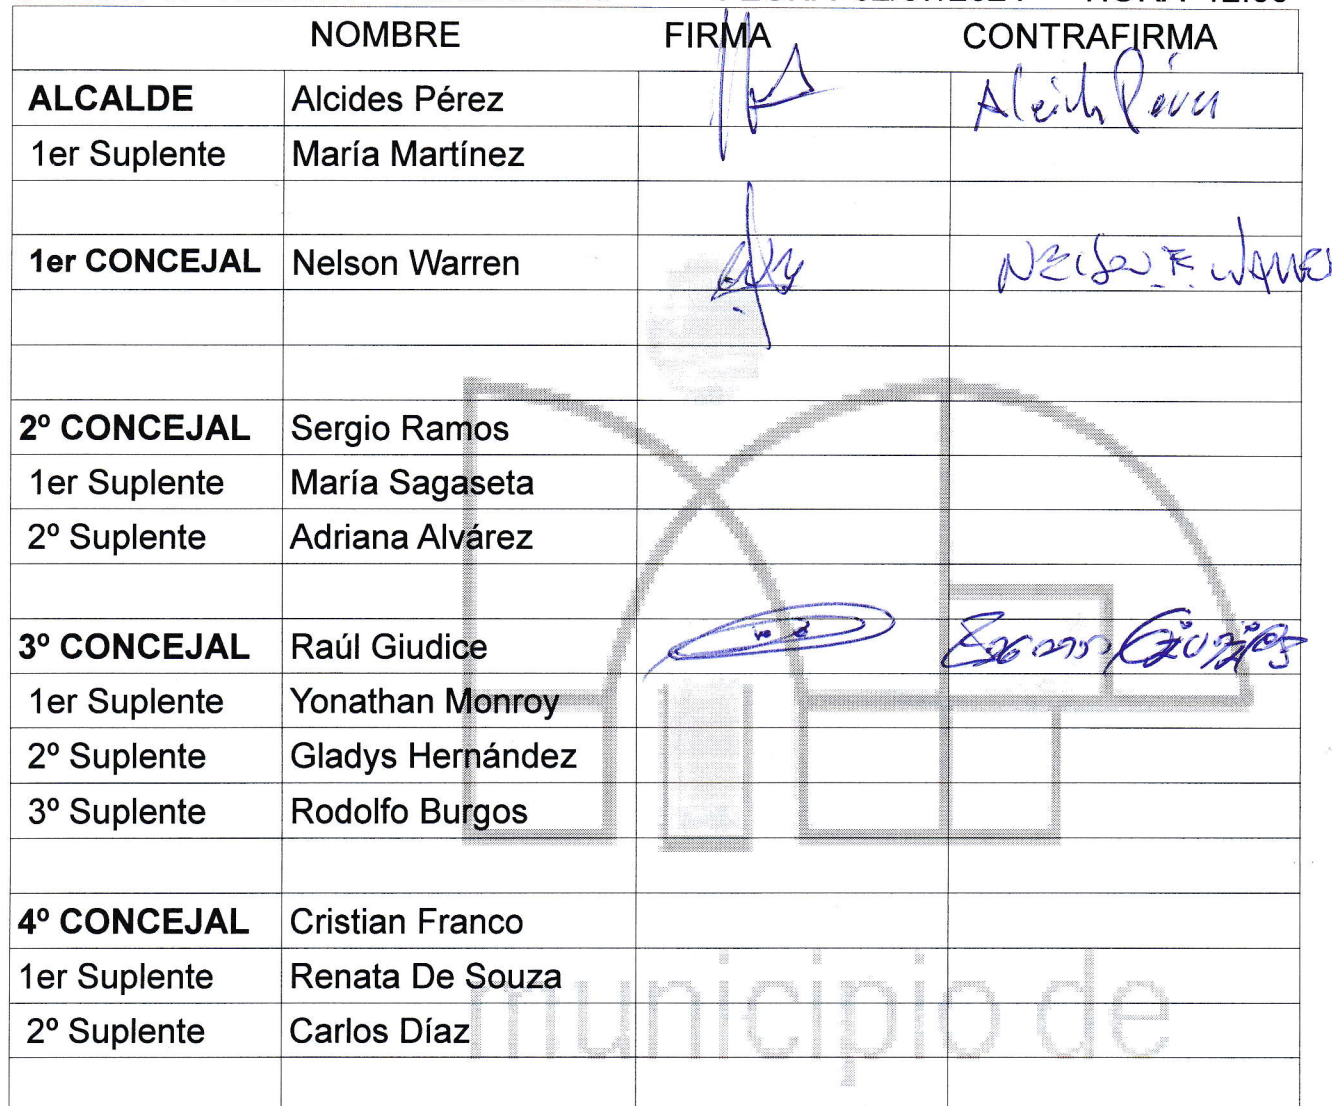 NOMBRE FIRMA CONTRAFIRMA
ALCALDE Alcides Pérez Alcides Pérez
1er Suplente María Martínez
1er CONCEJAL Nelson Warren NELSON F. WARREN
2º CONCEJAL Sergio Ramos
1er Suplente María Sagaseta
2º Suplente Adriana Alvárez
3º CONCEJAL Raúl Giudice
1er Suplente Yonathan Monroy
2º Suplente Gladys Hernández
3º Suplente Rodolfo Burgos
4º CONCEJAL Cristian Franco
1er Suplente Renata De Souza
2º Suplente Carlos Díaz
municipio de